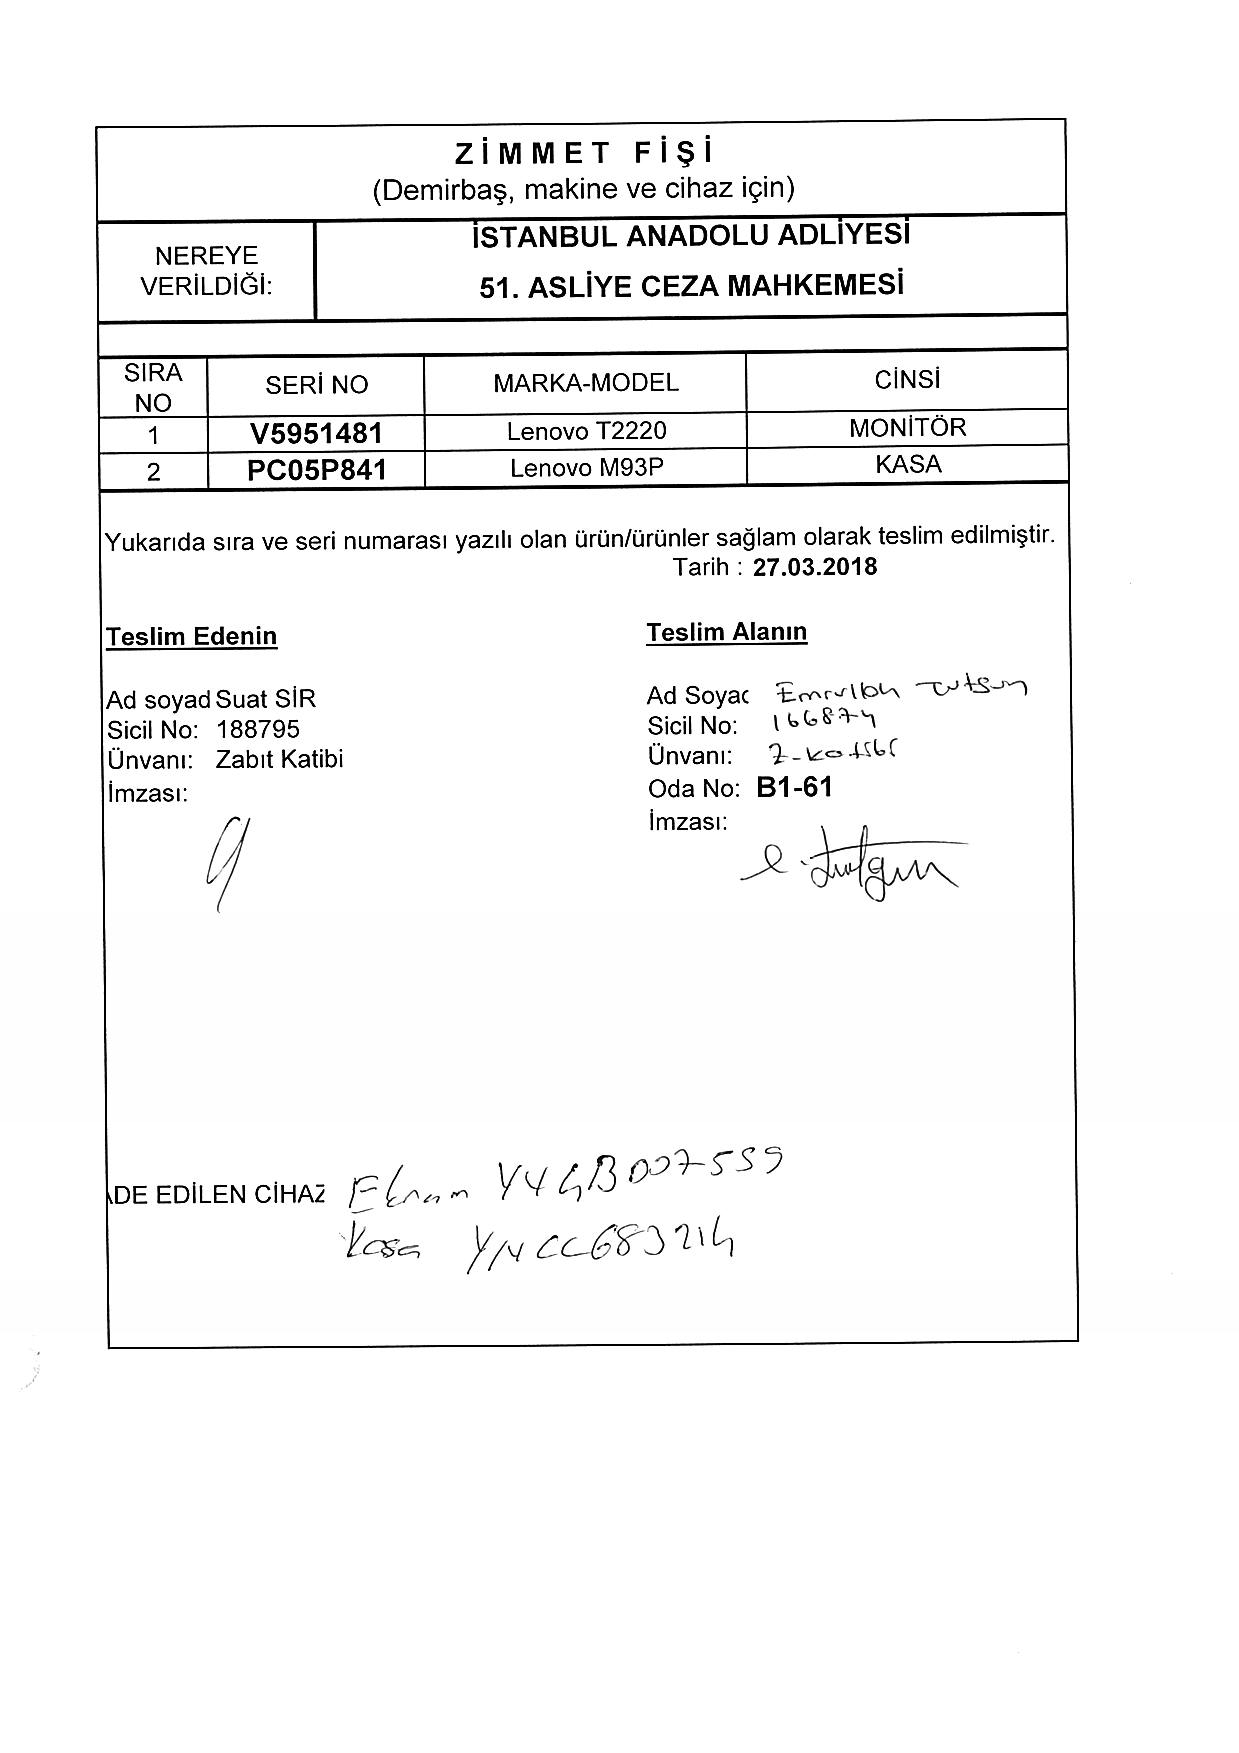 ZİMMET FİŞİ
(Demirbaş, makine ve cihaz için)
NEREYE VERİLDİĞİ:
İSTANBUL ANADOLU ADLİYESİ
51. ASLİYE CEZA MAHKEMESİ
SIRA NO SERİ NO MARKA-MODEL CİNSİ
1 V5951481 Lenovo T2220 MONİTÖR
2 PC05P841 Lenovo M93P KASA
Yukarıda sıra ve seri numarası yazılı olan ürün/ürünler sağlam olarak teslim edilmiştir.
Tarih : 27.03.2018
Teslim Edenin
Ad soyad Suat SİR
Sicil No: 188795
Ünvanı: Zabıt Katibi
İmzası:
Teslim Alanın
Ad Soyad
Sicil No: 166874
Ünvanı: Z. Katibi
Oda No: B1-61
İmzası:
ADE EDİLEN CİHAZ Ekran
Kasa